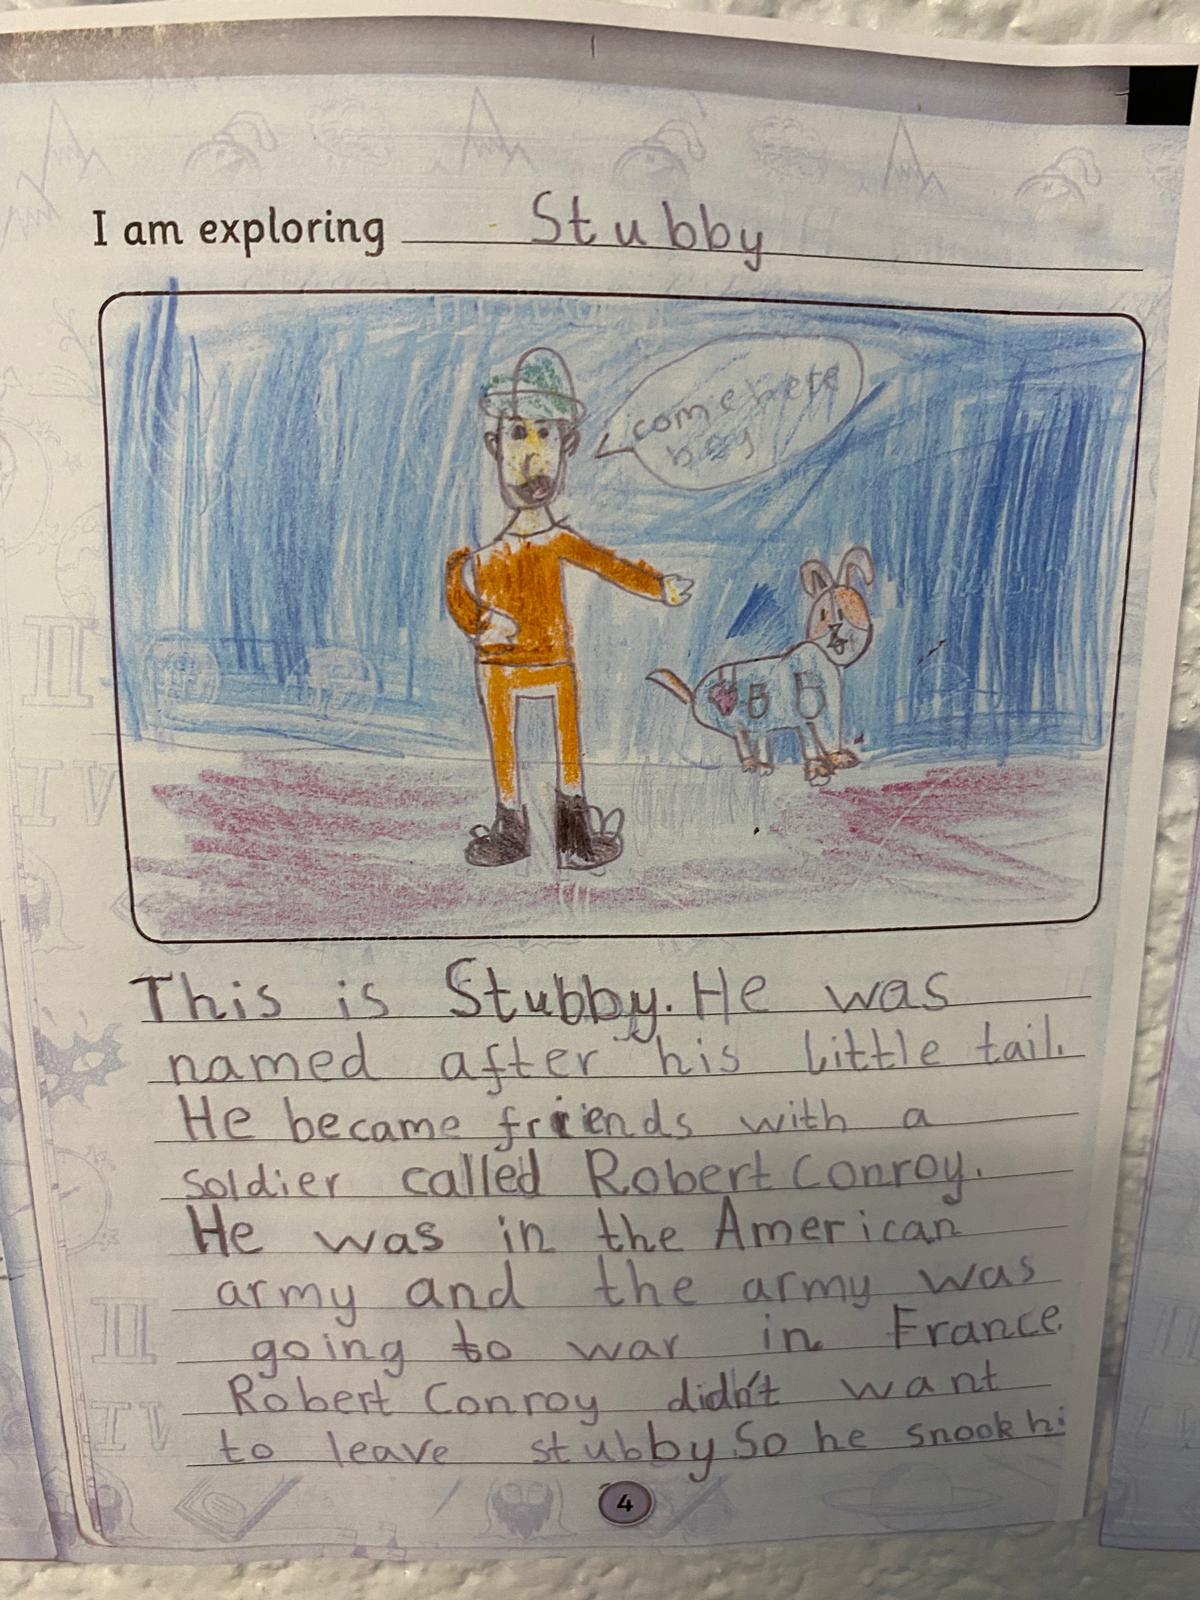 I am exploring Stubby
come here
boy
This is Stubby. He was
named after his little tail.
He became friends with a
soldier called Robert Conroy.
He was in the American
army and the army was
going to war in France.
Robert Conroy didn't want
to leave stubby So he snook hi
4